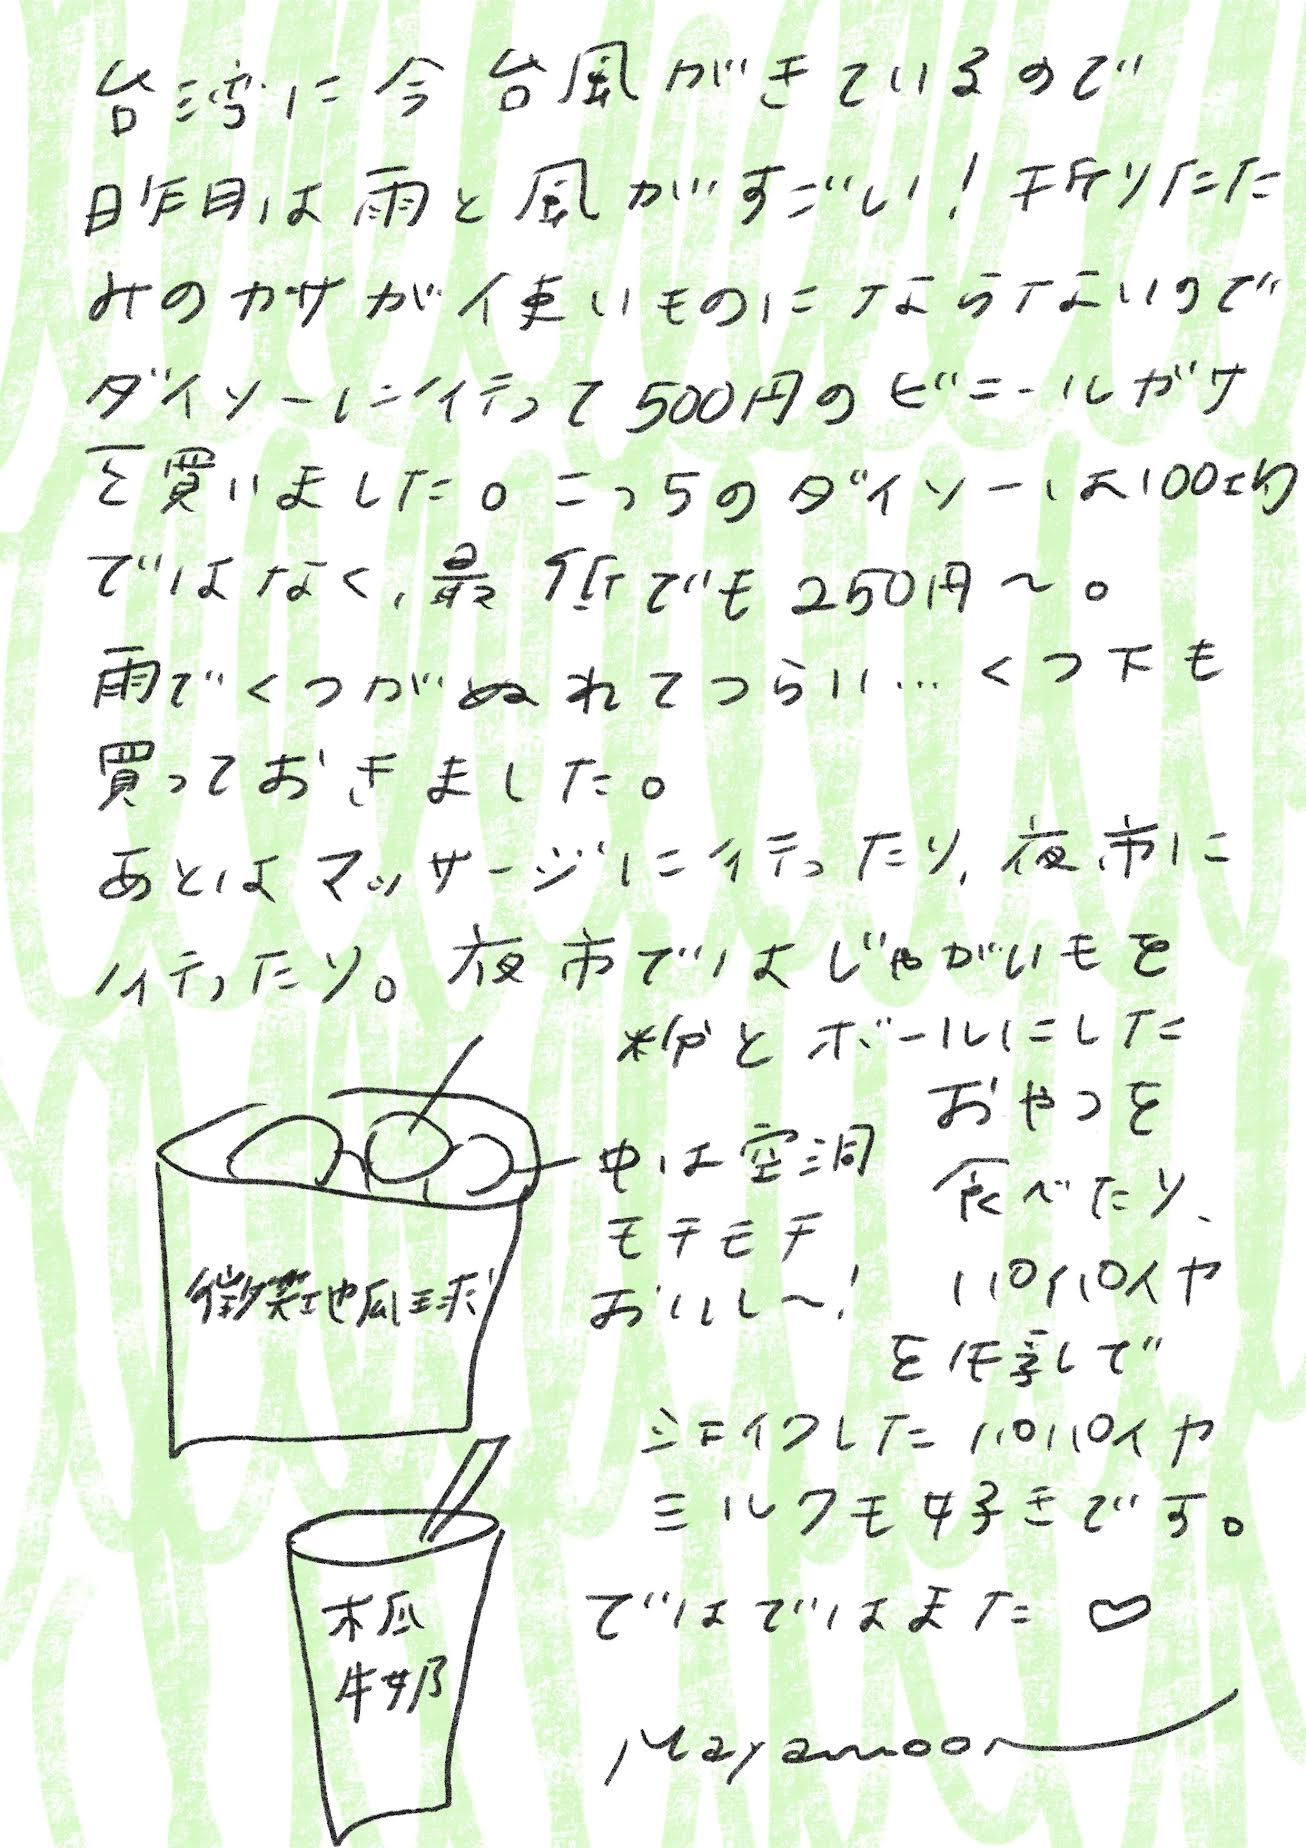 台湾に今台風がきているので
昨日は雨と風がすごい!折りたた
みのカサが使いものにならないので
ダイソーに行って500円のビニールガサ
を買いました。こっちのダイソーは100均
ではなく、最低でも250円〜。
雨でくつがぬれてつらい…くつ下も
買っておきました。
あとはマッサージに行ったり、夜市に
行ったり。夜市ではじゃがいもを
粉とボールにした
おやつを
食べたり、
パパイヤ
を牛乳で
シェイクしたパパイヤ
ミルクも好きです。
ではではまた♡
Mayamoon
中は空洞
モチモチ
おいし〜!
微笑地瓜球
木瓜
牛奶